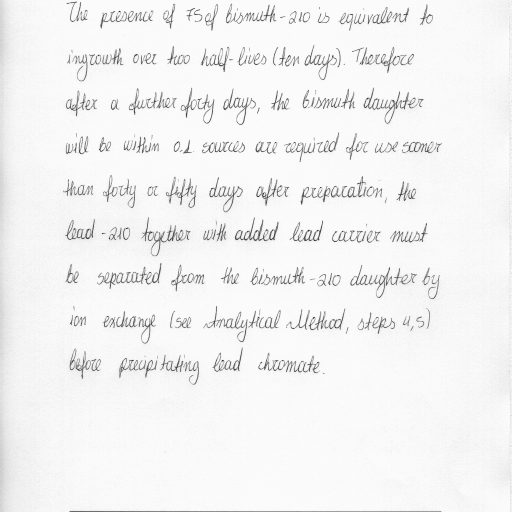 The presence of 75 of bismuth-210 is equivalent to
ingrowth over two half-lives (ten days). Therefore
after a further forty days, the bismuth daughter
will be within 0.1 sources are required for use sooner
than forty or fifty days after preparation, the
lead-210 together with added lead carrier must
be separated from the bismuth-210 daughter by
ion exchange (see Analytical Method, steps 4,5)
before precipitating lead chromate.